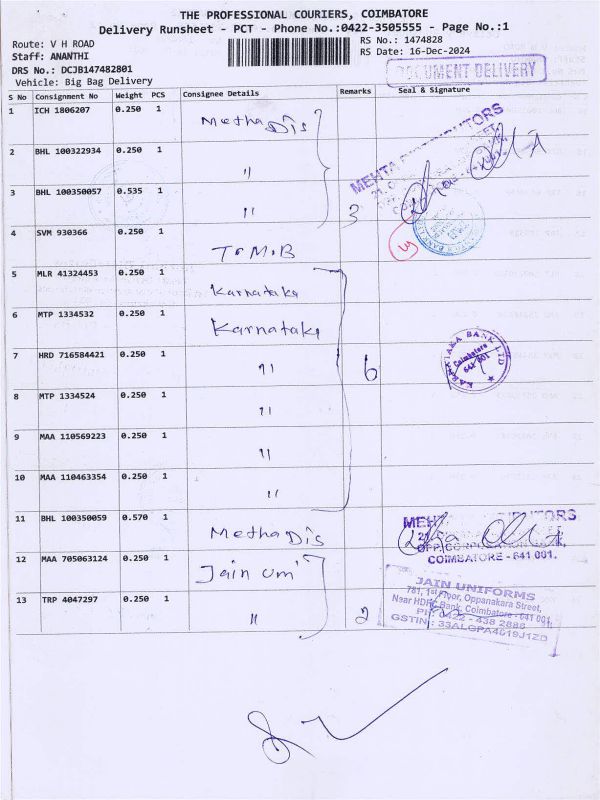 THE PROFESSIONAL COURIERS, COIMBATORE
Delivery Runsheet - PCT - Phone No.:0422-3505555 - Page No.:1
Route: V H ROAD
RS No.: 1474828
Staff: ANANTHI
RS Date: 16-Dec-2024
DRS No.: DCJB147482801
DOCUMENT DELIVERY
Vehicle: Big Bag Delivery
S No Consignment No Weight PCS Consignee Details Remarks Seal & Signature
1 ICH 1806207 0.250 1 Metha Dis
MEHTA DISTRIBUTORS
2 BHL 100322934 0.250 1 "
3 BHL 100350057 0.535 1 " 3
4 SVM 930366 0.250 1 T.M.B
5 MLR 41324453 0.250 1 Karnataka
6 MTP 1334532 0.250 1 Karnataka
7 HRD 716584421 0.250 1 " 6
KARNATAKA BANK LTD
Coimbatore
641 001
8 MTP 1334524 0.250 1 "
9 MAA 110569223 0.250 1 "
10 MAA 110463354 0.250 1 "
11 BHL 100350059 0.570 1 Metha Dis
MEHTA DISTRIBUTORS
OPP. CORPORATION
COIMBATORE - 641 001.
12 MAA 705063124 0.250 1 Jain Umi
13 TRP 4047297 0.250 1 " 2
JAIN UNIFORMS
781, 1st Floor, Oppanakara Street,
Near HDFC Bank, Coimbatore - 641 001.
PH: 0422 - 438 2886
GSTIN : 33ALGPA4019J1ZD